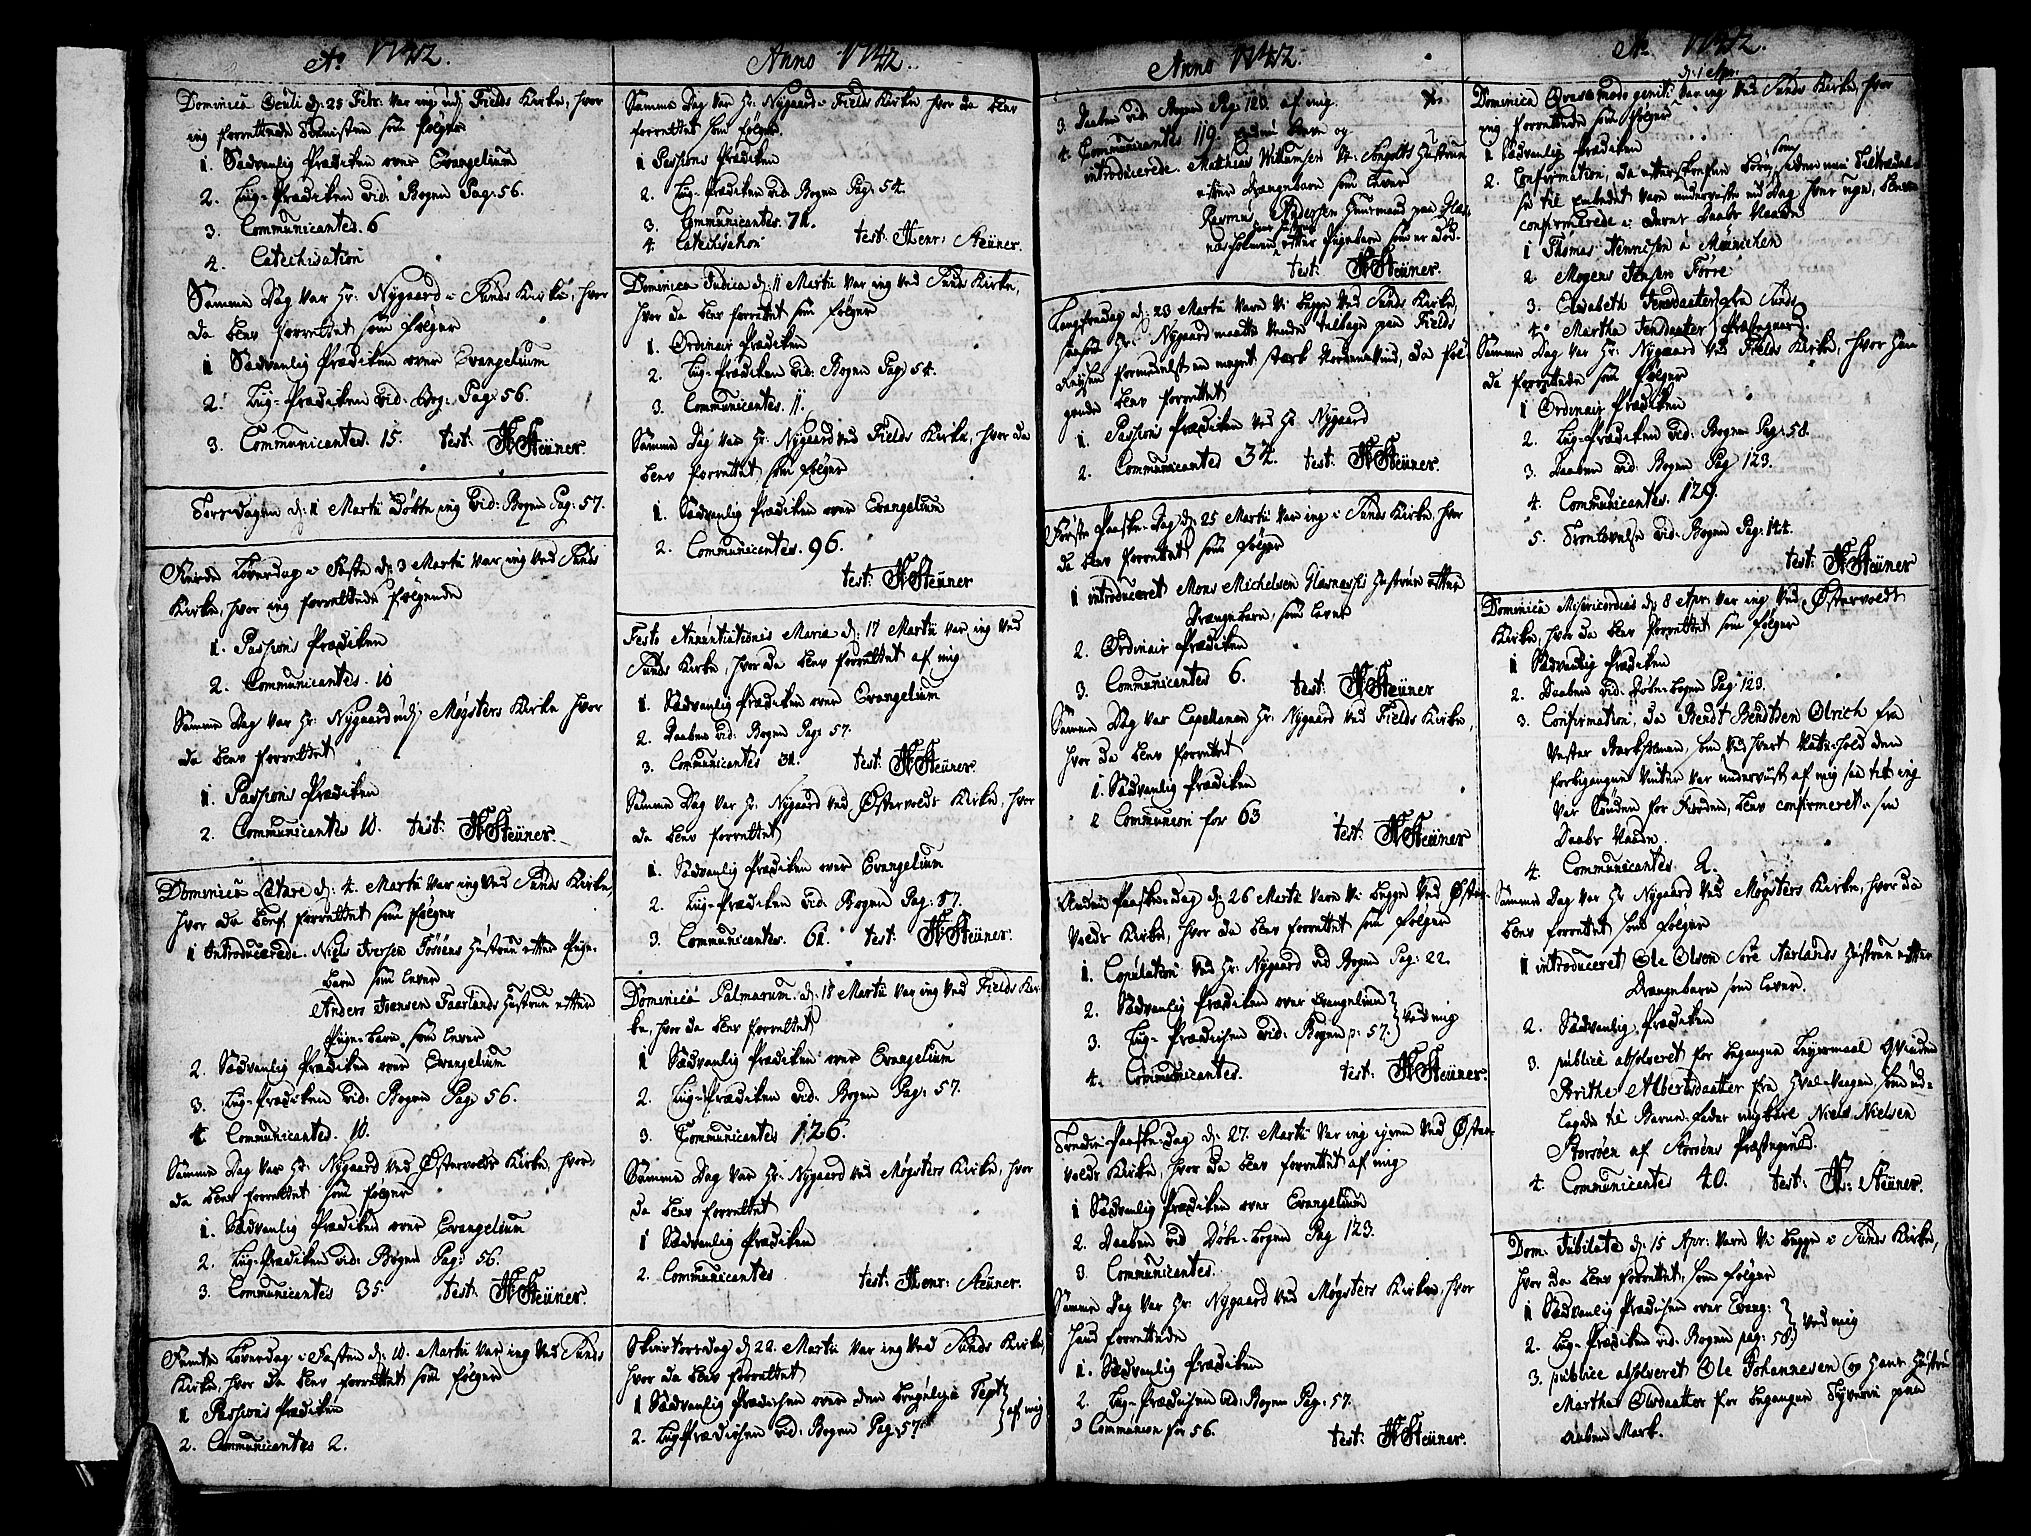 Aº 1742.
Dominica Oculi d: 25 Febr: var ieg udj Fields Kirke, hvor
ieg forrettede Tienisten som følger
1. Sædvanlig Prædiken over Evangelium
2. Liig-Prædiken vid: Bogen Pag: 56.
3. Communicantes. 6
4. Catechisation
Samme Dag var Hr: Nÿgaard i Sunds Kirke, hvor
da blev forrettet som følger
1 Sædvanlig Prædiken over Evangelium
2. Liig-Prædiken vid. Bog: Pag: 56.
3. Communicantes. 15. test: H. Steüner.
Torsdagen d: 1 Martii Døbte ieg vid: Bogen Pag: 57.
Fierde Løverdag i Faste d: 3 Martii var ieg ved Sunds
Kirke, hvor ieg forrettede følgende
1. Passions Prædiken
2. Communicantes. 10
Samme Dag var Hr: Nÿgaard udj Møgsters Kirke hvor
da blev forrettet
1. Passions Prædiken
2. Communicantes 10. test: H. Steüner.
Dominica Lætare d: 4. Martii var ieg ved Sunds Kirke,
hvor da blev forrettet som følger
1 Introducerede. Niels Iversen Hustrue efter Pige-
Barn som lever
Anders Hansen Faarlands Hustrue efter
Pige-Barn som lever
2. Sædvanlig Prædiken over Evangelium
3. Liig-Prædiken vid: Bogen Pag: 56.
4. Communicantes. 10.
Samme Dag var Hr: Nÿgaard ved Østervolds Kirke, hvor
da blev forrettet som følger
1. Sædvanlig Prædiken over Evangelium
2. Liig-Prædiken vid: Bogen Pag: 56.
3. Communicantes 35. test: H. Steüner.
Femte Løverdag i Fasten d: 10. Martii var ieg ved Sunds
Kirke, hvor da blev forrettet som følger
1 Passions Prædiken
2. Communicantes 2.
Anno 1742.
Samme Dag var Hr: Nÿgaard i Fields Kirke, hvor da blev
forrettet som følger.
1 Passions Prædiken
2. Liig-Prædiken vid: Bogen Pag: 54.
3. Communicantes. 71.
4. Catechisation test: Henr: Steüner.
Dominica Judica d: 11 Martii var ieg ved Sunds Kirke,
hvor da blev forrettet som følger
1. Ordinair Prædiken
2. Liig-Prædiken vid: Bogen Pag: 54.
3. Communicantes. 11.
Samme Dag var Hr: Nÿgaard ved Fields Kirke, hvor da
blev forrettet som følger
1. Sædvanlig Prædiken over Evangelium
2. Communicantes. 96.
test: H. Steüner
Festo Annuntiationis Mariæ d: 17 Martii var ieg ved
Sunds Kirke, hvor da blev forrettet af mig
1. Sædvanlig Prædiken over Evangelium
2. Daaben vid: Bogen Pag: 57.
3. Communicantes 31. test: H. Steüner.
Samme Dag var Hr: Nÿgaard ved Østervolds Kirke, hvor
da blev forrettet
1. Sædvanlig Prædiken over Evangelium
2. Liig-Prædiken vid: Bogen Pag: 57.
3. Communicantes. 61. test: H. Steüner.
Dominica Palmarum. d: 18 Martii var ieg ved Fields Kir-
ke, hvor da blev forrettet
1 Sædvanlig Prædiken over Evangelium
2. Liig-Prædiken vid: Bogen Pag: 57.
3. Communicantes 126.
Samme Dag var Hr: Nÿgaard ved Møgsters Kirke, hvor
da blev forrettet
1 Sædvanlig Prædiken
2. Communicantes test: Henr: Steüner.
Skiertorsdag d: 22. Martii var ieg ved Sunds Kirke,
hvor da blev forrettet
1 Sædvanlig Prædichen over den Text
2. Liig-Prædichen vid: Bogen Pag: 57 af mig
Anno 1742.
3. Daaben vid: Bogen Pag: 123. af mig.
4. Communicantes 119
introducerede. Mathias Willumsen Hustrue
efter Drengebarn som lever
Rasmus Andersen Huusmand paa
efter Pigebarn som er død.
test: H. Steüner.
Langfredag d: 23 Martii vare vi begge ved Sunds Kirke,
Hr: Nÿgaard maatte vende tilbage paa Fields
Reysen formedelst en meget stærk Nordenvind, da føl-
gende blev forrettet
1. Passions Prædiken ved Hr: Nÿgaard
2. Communicantes 34. test: H. Steüner.
Første Paaske-Dag d: 25 Martii var ieg i Sunds Kirke, hvor
da blev forrettet som følger
1 introduceret Mons Michelsen Glesnæsses Hustrue efter
Drengebarn, som lever
2. Ordinair Prædiken
3. Communicantes 6. test: H. Steüner
Samme Dag var Capellanen Hr: Nÿgaard ved Fields Kirke,
hvor da blev forrettet
1. Sædvanlig Prædiken
2 Communion for 63
test: H. Steüner
Anden Paaske-Dag d: 26 Martii vare vi begge ved Øster-
volds Kirke, hvor da blev forrettet som følger
1. Copulation ved Hr: Nÿgaard vid Bogen Pag: 22.
2. Sædvanlig Prædiken over Evangelium
3. Liig-Prædichen vid: Bogen p: 57. ved mig
4. Communicantes. test: H. Steüner.
Tredie Paaske-Dag d: 27. Martii var ieg igien ved Øster-
volds Kirke, hvor da blev forrettet af mig
1 Sædvanlig Prædiken over Evangelium
2. Daaben vid Døbe-Bogen Pag 123.
3 Communicantes.
Samme Dag var Hr: Nÿgaard ved Møgsters Kirke, hvor
hand forrettede
1. Sædvanlig Prædiken
2. Liig-Prædichen vid: Bogen Pag: 57.
3 Communion for 56. test: H. Steüner.
Aº 1742.
d: 1 Apr:
Dominica Qvasimodo geniti var ieg ved Sunds Kirke, hvor
ieg forrettede som følger
1 Sædvanlig Prædiken
2. Confirmation, da efterskrefne Børn, som siden min Tiltrædel-
se til Embedet vare underviiste een Dag hver uge, bleve
confirmerede i deres Daabs Naade
1 Thomas Hennichsen a Münichen
2 Mogens Jensen Førre
3. Elisabeth Jensdaatter fra Sunds
4. Martha Jensdaatter Præstegaard.
Samme Dag var Hr: Nÿgaard ved Fields Kirke, hvor han
da forrettede som følger
1 Ordinair Prædiken
2. Liig-Prædiken vid: Bogen Pag: 58.
3. Daaben vid: Bogen Pag 123.
4. Communicantes. 129.
5. Trolovelse vid: Bogen Pag: 144.
test: H. Steüner
Dominica Misericordias d: 8 Apr: var ieg ved Østervolds
Kirke, hvor da blev forrettet som følger
1 Sædvanlig Prædiken
2. Daaben vid: Døbe-Bogen Pag: 123.
3. Confirmation, da Bendt Bendtsen Olrich fra
Vester Bachholmen, som ved hvert Vaare-hold den
forbigangne Vinter var underviist af mig saa tit ieg
var Sønden for Fiorden, blev confirmeret i sin
Daabs Naade.
4. Communicantes. 2.
Samme Dag var Hr: Nÿgaard ved Møgsters Kirke, hvor da
blev forrettet som følger
1 introduceret Ole Olsen Søre Aarlands Hustrue efter
Drengebarn som lever.
2. Sædvanlig Prædiken
3. publicè absolveret for begangne Leyermaal Qvinden
Brithe Albertsdaatter fra Hval-Vaagen, som ud-
lagde til Barne-fader ungkarl Niels Nielsen
Storsøen af Storøens Præstegield.
4. Communicantes 40. test: H: Steüner.
Dom. Jubilate d: 15 Apr: vare vi begge i Sunds Kirke,
hvor da blev forrettet, som følger
1 Sædvanlig Prædichen over Evang:
2. Liig-Prædiken vid: Bogen pag: 58 ved mig
3. publice absolveret Ole Johannesen og hans Hustru
Martha Olsdaatter for begangen Tyverie paa
aaben Mark.